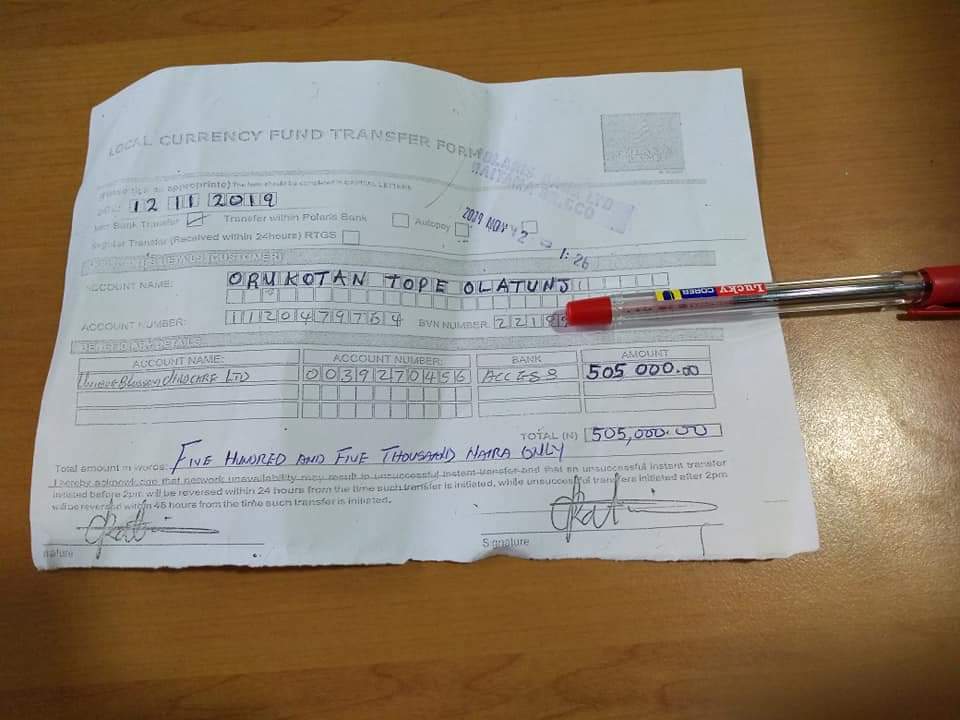 LOCAL CURRENCY FUND TRANSFER FORM
(Please tick as appropriate) The form should be completed in CAPITAL LETTERS
12 11 2019
Bank Transfer Transfer within Polaris Bank Autopay
Regular Transfer (Received within 24hours) RTGS
2019 NOV 12
1:26
(CUSTOMER)
ACCOUNT NAME: ORUKOTAN TOPE OLATUNJI
ACCOUNT NUMBER: 1120479764 BVN NUMBER: 2218
ACCOUNT NAME: ACCOUNT NUMBER: BANK AMOUNT
CHILDCARE LTD 0039270456 ACCESS 505 000.00
TOTAL (N) 505,000.00
Total amount in words: FIVE HUNDRED AND FIVE THOUSAND NAIRA ONLY
I hereby acknowledge that network unavailability may result in unsuccessful instant transfer and that an unsuccessful instant transfer
initiated before 2pm will be reversed within 24 hours from the time such transfer is initiated, while unsuccessful transfers initiated after 2pm
will be reversed within 48 hours from the time such transfer is initiated.
nature Signature
Lucky
CORER